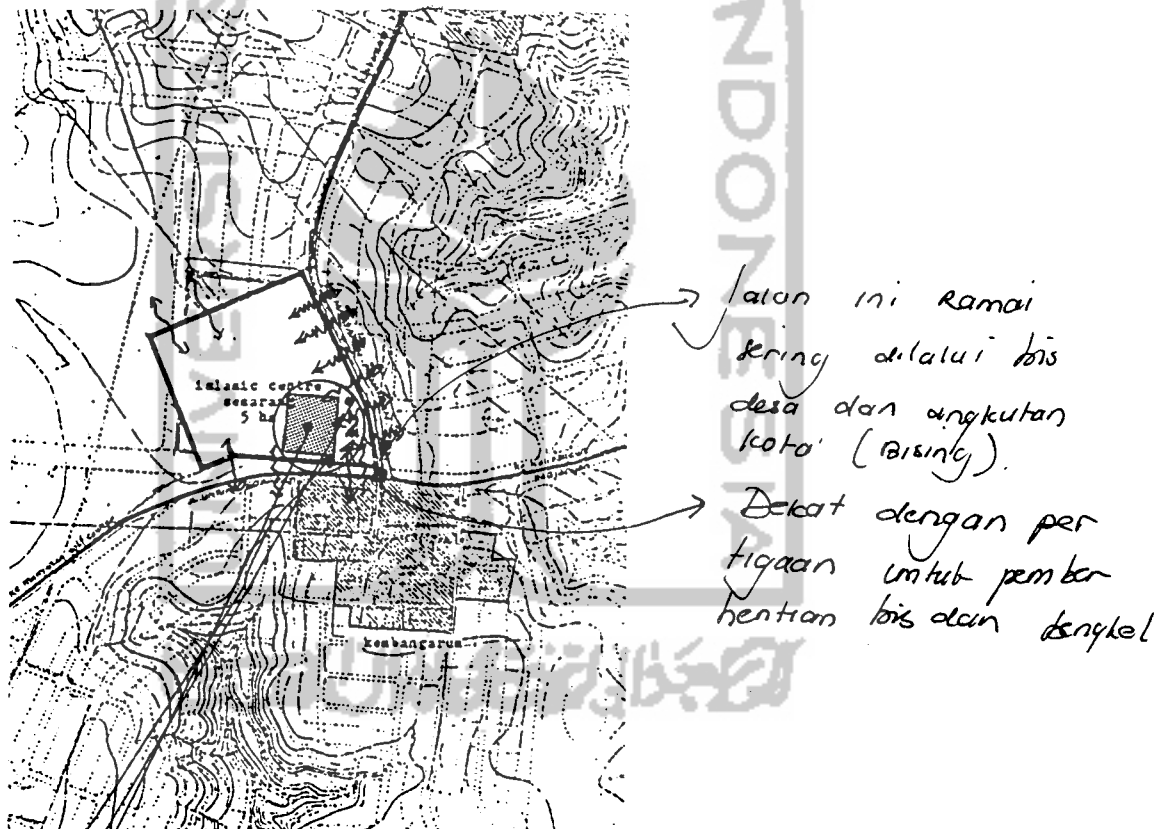 islamic centre
semarang
5 ha
kembangarum
Jalan ini Ramai
sering dilalui bis
desa dan angkutan
kota (Bising).
Dekat dengan per
tigaan untuk pember
hentian bis dan bengkel
NDONESIA